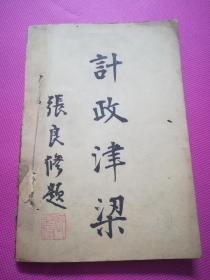 計政津梁
張良修題